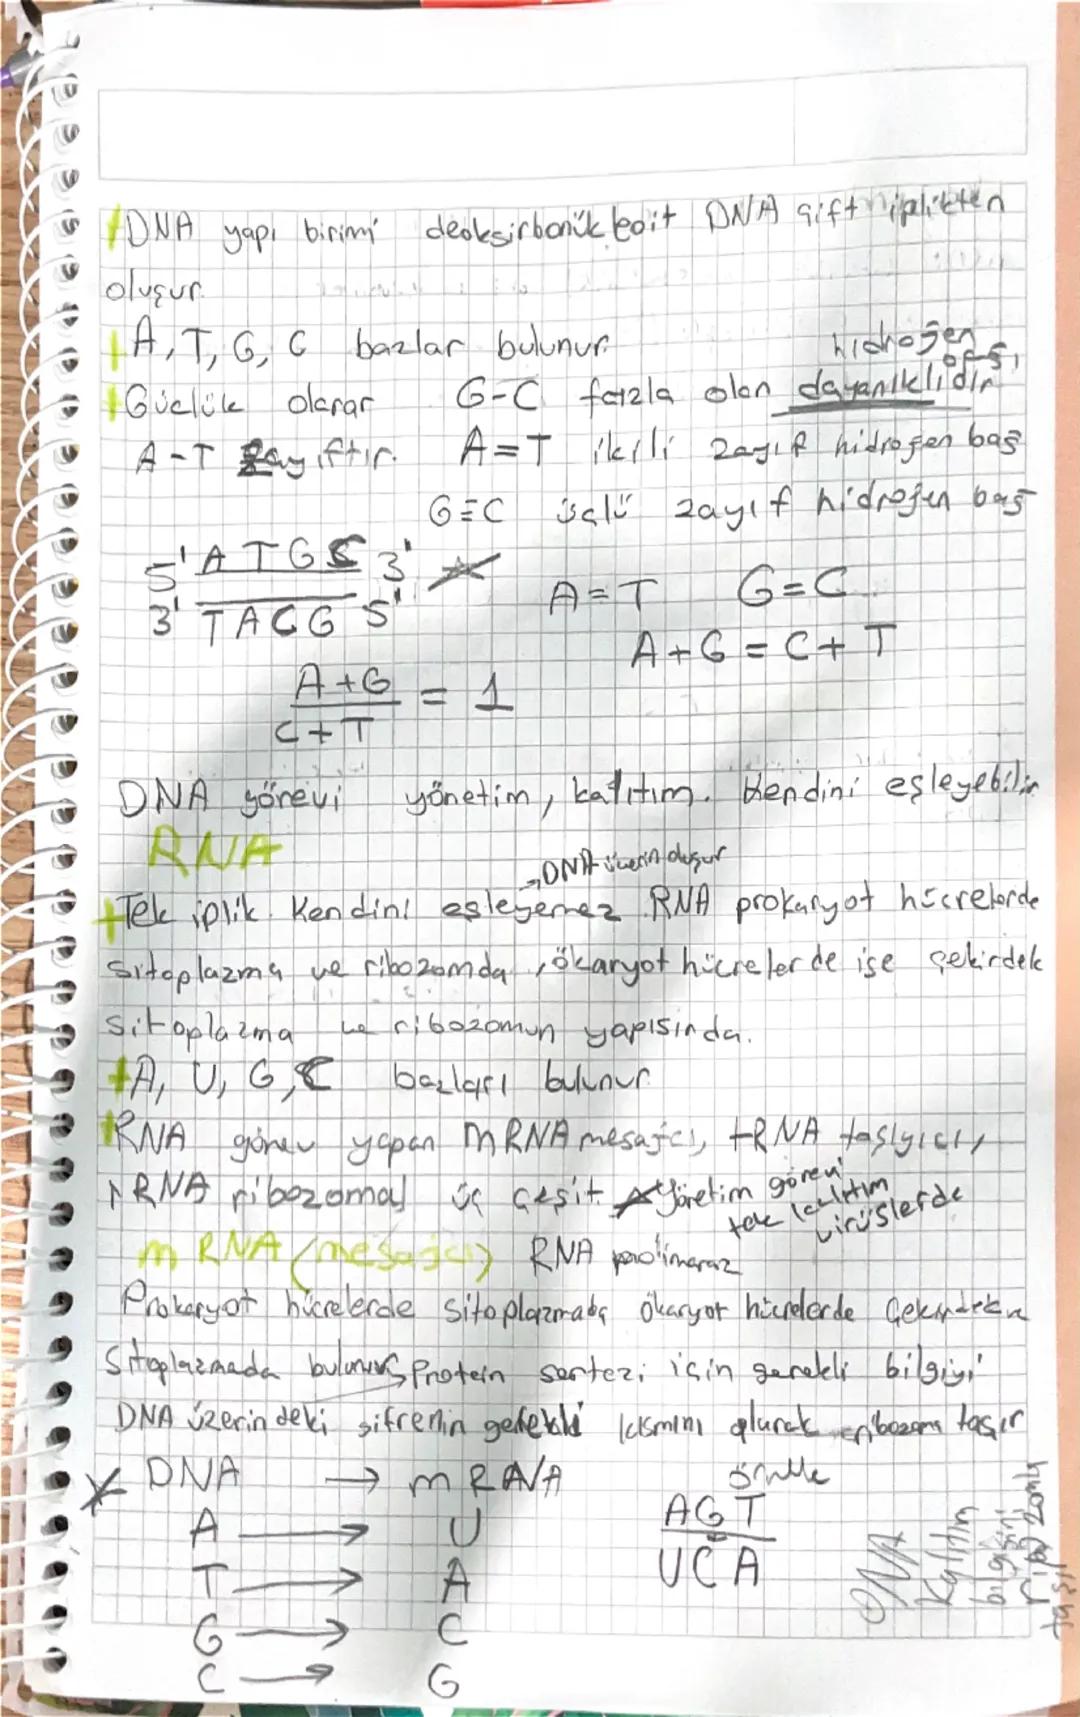 DNA yapı birimi deoksirbonükleoit DNA çift iplikten
oluşur.
A, T, G, C bazlar bulunur.
hidrojen
Güçlük olarar G-C fazla olan dayanıklıdır
A-T zayıftır. A=T ikili zayıf hidrojen bağ
G≡C üçlü zayıf hidrojen bağ
5' ATGC 3'
3' TACG 5'
A=T G=C
A+G = C+T
A+G = 1
C+T
DNA görevi yönetim, kalıtım. Kendini eşleyebilir
RNA
→DNA üzerin
Tek iplik. Kendini eşleyemez RNA prokaryot hücrelerde
sitoplazma ve ribozomda, ökaryot hücrelerde ise çekirdek
sitoplazma ve ribozomun yapısında.
A, U, G, C bazları bulunur
RNA görev yapan mRNA mesajcı, tRNA taşıyıcı,
rRNA ribozomal üç çeşit Yönetim görevi
tek kalıtım
virüslerde
mRNA (mesajcı) RNA prolimeraz
Prokaryot hücrelerde sitoplazmada ökaryot hücrelerde
Sitoplazmada bulunur Protein sentezi için gerekli bilgiyi
DNA üzerindeki şifrenin gerekli kısmını alarak taşır
DNA → mRNA
A → U
T → A
G → C
C → G
örnek
AGT
UCA
DNA
bilgisini